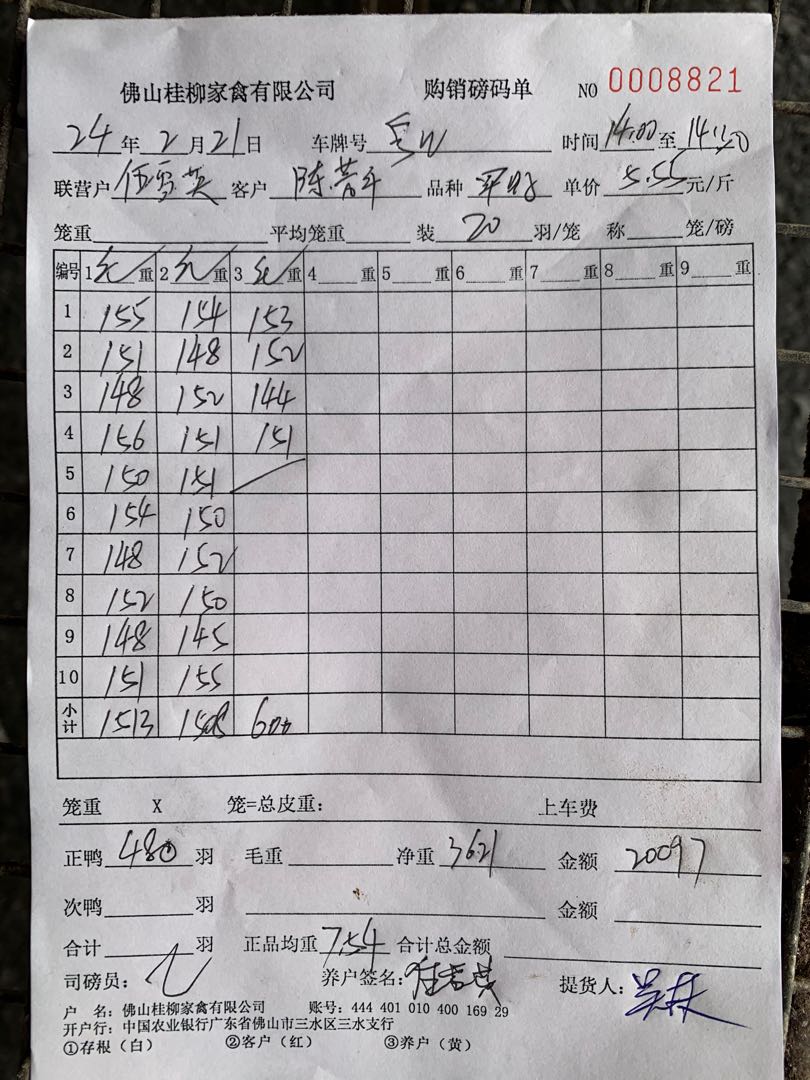 佛山桂柳家禽有限公司 购销磅码单 NO 0008821
24年2月21日 车牌号 时间14:00至14:50
联营户伍雪英 客户 陈 品种 单价5.55元/斤
笼重 平均笼重 装20羽/笼 称 笼/磅
编号 1 重 2 重 3 重 4 重 5 重 6 重 7 重 8 重 9 重
1 155 154 153
2 151 148 152
3 148 152 144
4 156 151 151
5 150 151
6 154 150
7 148 152
8 152 150
9 148 145
10 151 155
小计 1513 1508 600
笼重 X 笼=总皮重: 上车费
正鸭480羽 毛重 净重3621 金额20097
次鸭 羽 金额
合计 羽 正品均重7.54 合计总金额
司磅员: 养户签名: 提货人:
户 名: 佛山桂柳家禽有限公司 账号: 444 401 010 400 169 29
开户行: 中国农业银行广东省佛山市三水区三水支行
①存根(白) ②客户(红) ③养户(黄)